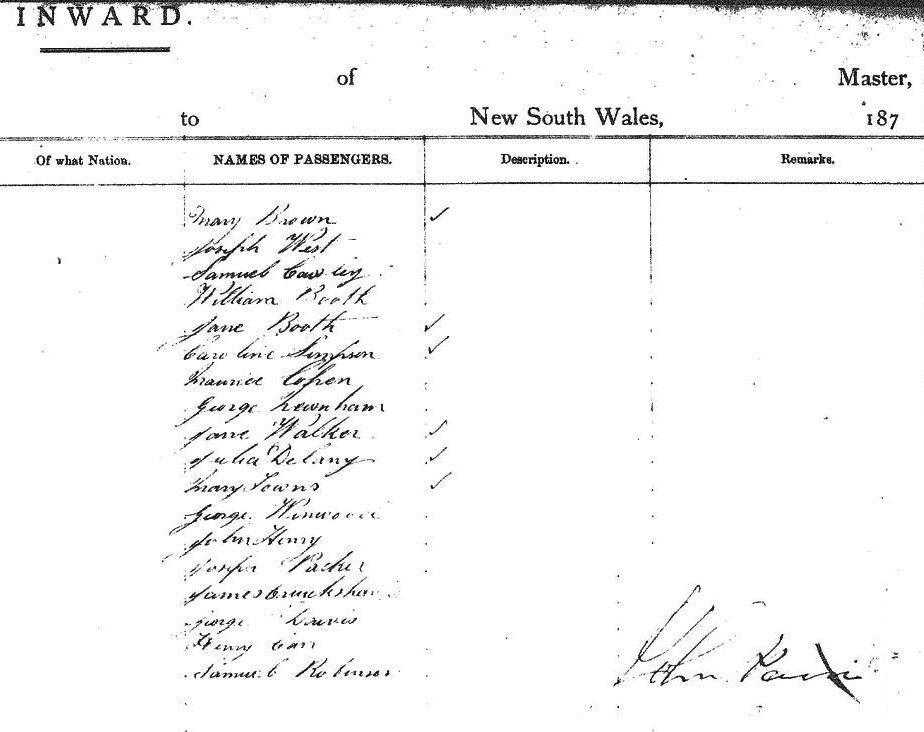 INWARD.
of Master,
to New South Wales, 187
Of what Nation. NAMES OF PASSENGERS. Description. Remarks.
Mary Brown ✓
Joseph West
Samuel
William Booth
Jane Booth ✓
Caroline Simpson ✓
Maurice Cohen
George Newnham
Jane Walker ✓
Julia Delany ✓
Mary Towns ✓
George Winwood
John Henry
Joseph
James
George Davis
Henry Carr
Samuel Robinson
John